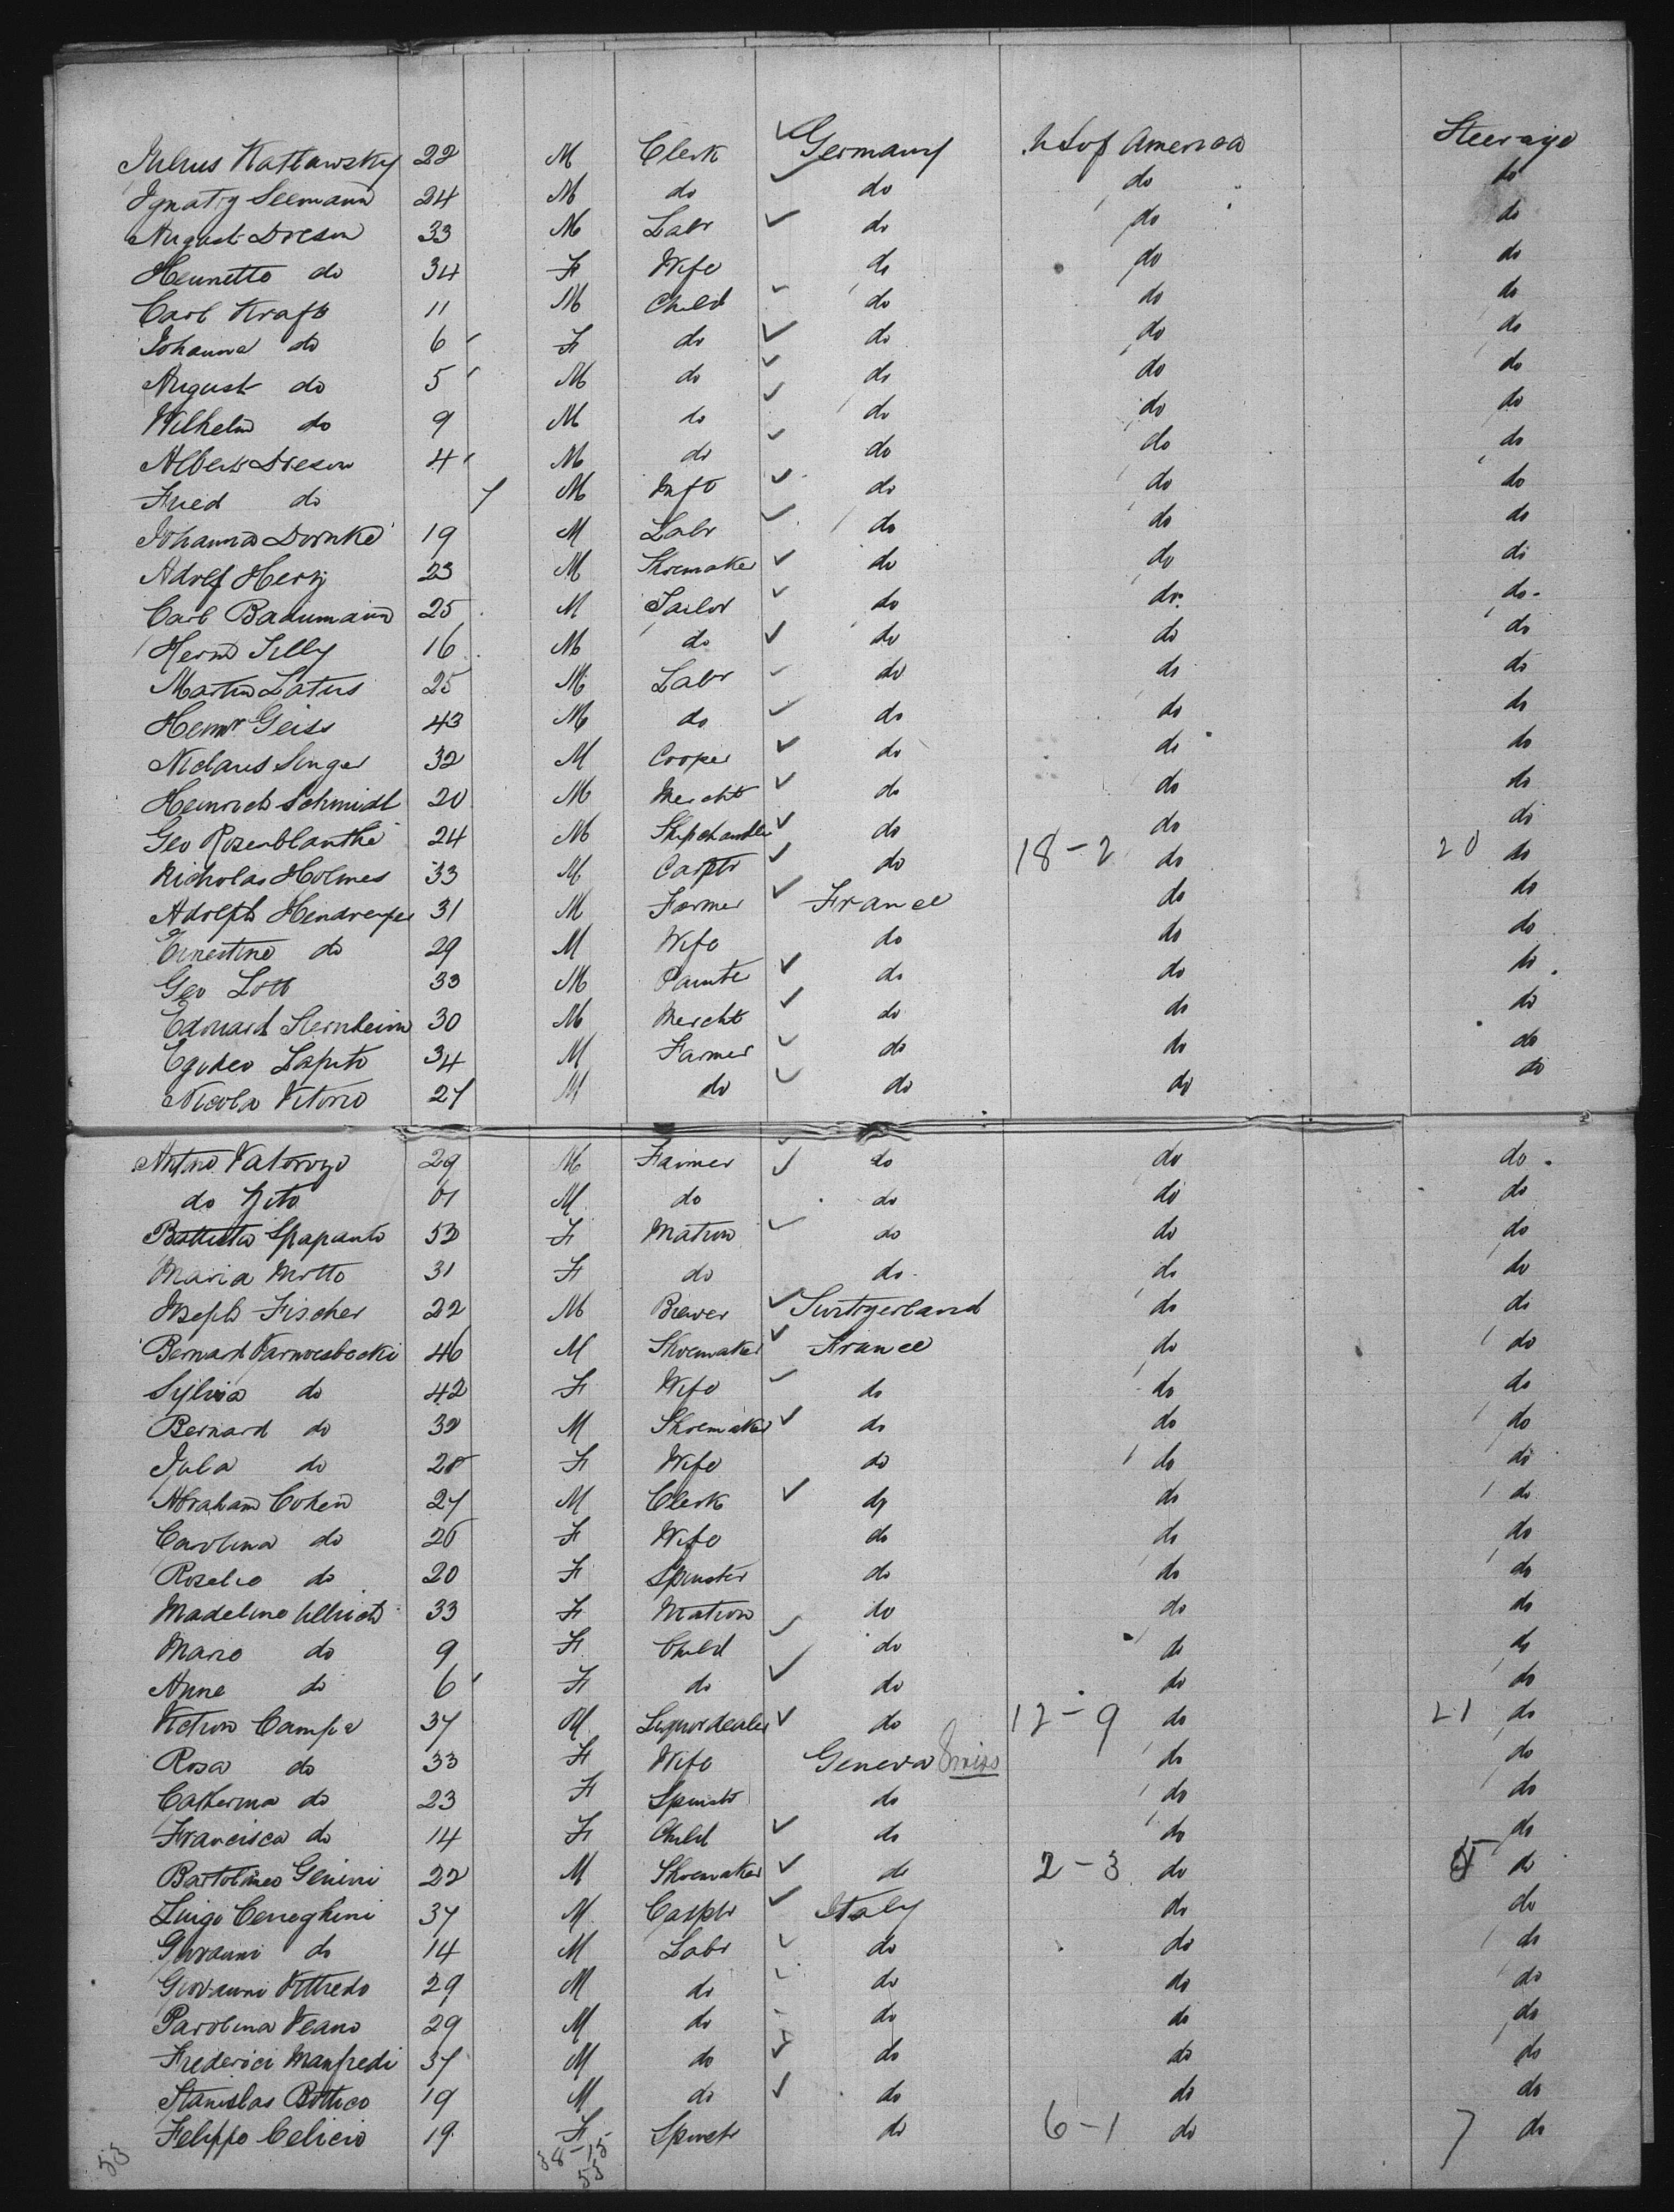 Julius Katlawsky 22 M Clerk Germany U S of America Steerage
Ignatz Seemann 24 M do do do do
August Dresen 33 M Labr do do do
Hennette do 34 F Wife do do do
Carl Kraft 11 M Child do do do
Johanna do 6 F do do do do
August do 5 M do do do do
Wilhelm do 9 M do do do do
Albert Dresen 4 M do do do do
Fried do 7 M Inft do do do
Johanna Dornke 19 M Labr do do do
Adolf Herz 23 M Shoemaker do do do
Carl Baaumann 25 M Tailor do do do
Herm Tilly 16 M do do do do
Martin Latus 25 M Labr do do do
Heinr Geiss 43 M do do do do
Niclaus Senger 32 M Cooper do do do
Heinrich Schmidt 20 M Mercht do do do
Geo Rosenblanthe 24 M Shipchandler do do do
Nicholas Holmes 33 M Carptr do 18-2 do 20 do
Adolph 31 M Farmer France do do
Ernestine do 29 M Wife do do do
Geo Lott 33 M Painter do do do
Edouard Sternheim 30 M Mercht do do do
Egideo Laputo 34 M Farmer do do do
Nicola Vitorio 27 M do do do do
Antno Vatorozo 29 M Farmer do do do
do Zito 01 M do do do do
Battista Spapanto 52 F Matron do do do
Maria Motto 31 F do do do do
Joseph Fischer 22 M Brewer Switzerland do do
Bernard 46 M Shoemaker France do do
Sylvia do 42 F Wife do do do
Bernard do 32 M Shoemaker do do do
Jula do 28 F Wife do do do
Abraham Cohen 27 M Clerk do do do
Carolina do 26 F Wife do do do
Rosalie do 20 F Spinster do do do
Madeline Ullrich 33 F Matron do do do
Marie do 9 F Child do do do
Anne do 6 F do do do do
Victron Campe 37 M Liquordealer do 12-9 do 21 do
Rosa do 33 F Wife Geneva Swiss do do
Catherina do 23 F Spinstr do do do
Francisca do 14 F Child do do do
Bartolmeo Genini 22 M Shoemaker do 2-3 do 5 do
Luigi Cereghini 37 M Carptr Italy do do
Giovanni do 14 M Labr do do do
Giovanni Vittredo 29 M do do do do
Parolina Veano 29 M do do do do
Frederici Manfredi 37 M do do do do
Stanislas Bottico 19 M do do do do
Felippo Celicio 19 F Spinstr do 6-1 do 7 do
53 38-15
53